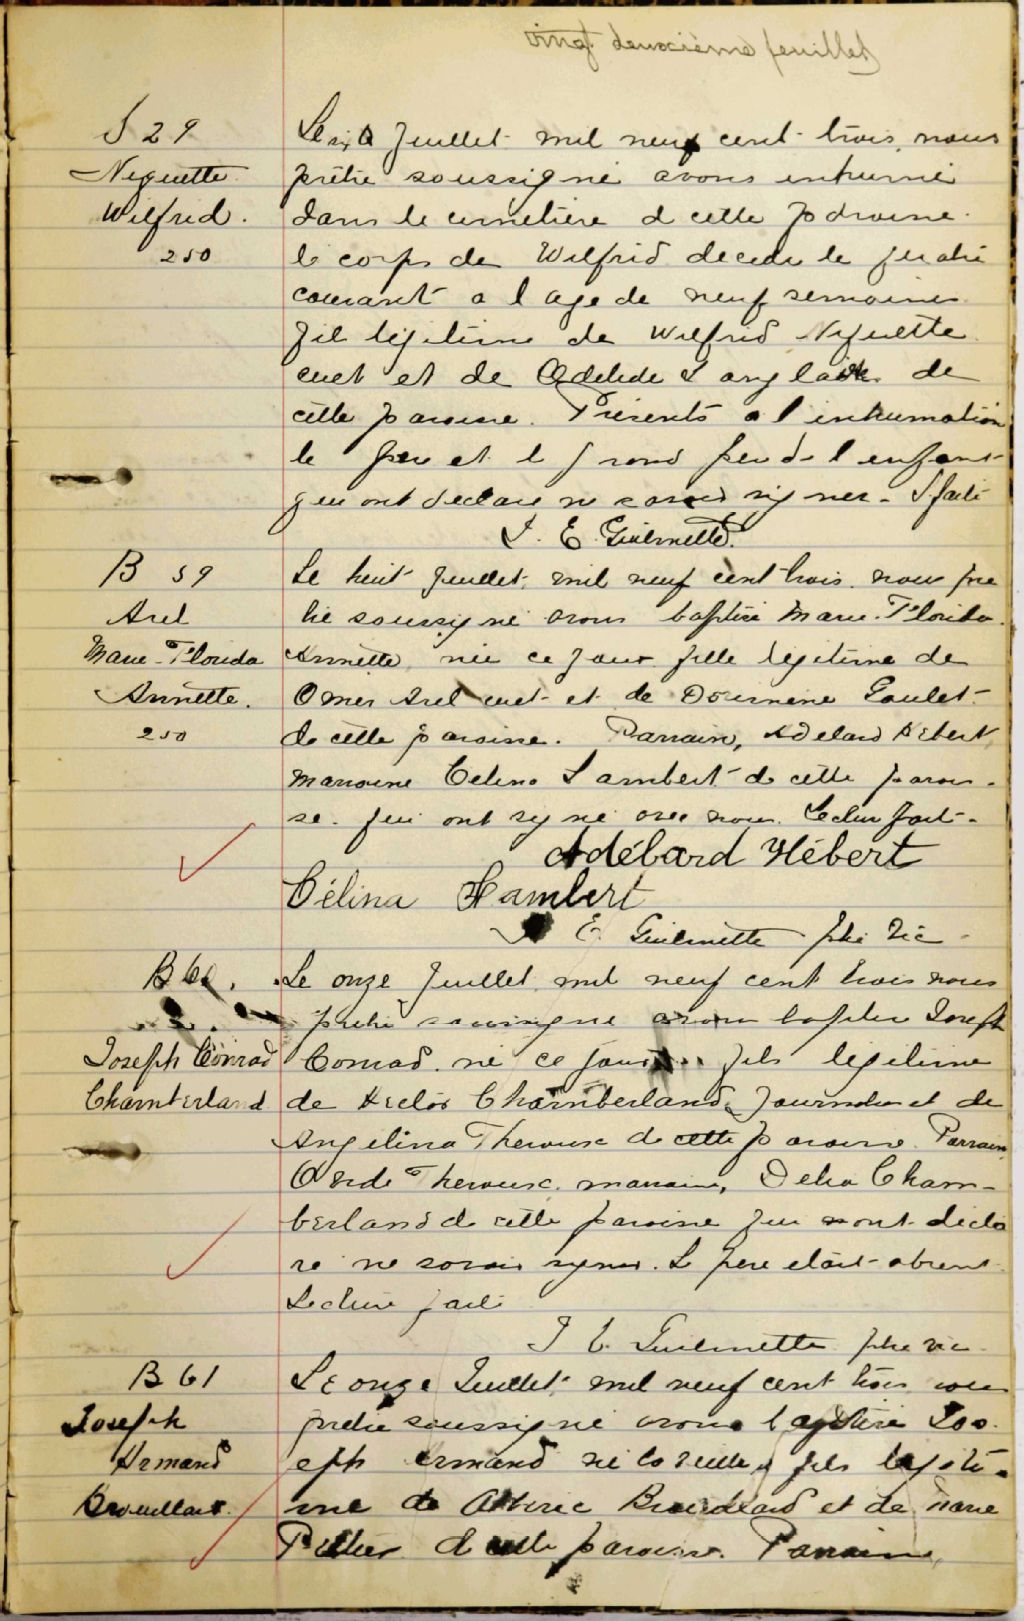 vingt deuxcième feuillet
S 29
Neguette
Wilfrid.
250
Le six Juillet mil neuf cent trois, nous
prêtre soussigné avons inhumé
dans le cimetière d cette paroisse
le corps de Wilfrid decede le quatre
courant a l age de neuf semaines
fil légitime de Wilfrid Neguette
cult et de Adelede Langlais de
cette paroisse. Présents a l inhumation
le père et le grand père de l enfant
qui ont declare ne savoir signer. L faite
J. E. Guilmette.
B 59
Arel
Marie-Florida
Annette.
250
Le huit Juillet mil neuf cent trois nous pre
tre soussigné avons baptisé Marie-Florida
Annette née ce jour fille légitime de
Omer Arel cult et de Dormene Goulet
de cette paroisse. Parrain, Adelard Hebert
marraine Celina Lambert de cette parois-
se. qui ont signé avec nous. Lecture faite.
Adélard Hébert
Célina Lambert
J. E. Guilmette ptre vic
B 60.
Joseph Conrad
Chamberland
Le onze Juillet mil neuf cent trois nous
prêtre soussigné avons baptisé Joseph
Conrad né ce jour fils légitime
de Chamberland Journalier et de
Angelina Theroux de cette paroisse. Parrain
Theroux, marraine, Delia Cham-
berland de cette paroisse qui n ont décla
ré ne savoir signer. Le père etait absent.
Lecture faite
J E. Guilmette ptre vic
B 61
Joseph
Armand
Brouillard
Le onze Juillet mil neuf cent trois nous
prêtre soussigné avons baptisé Jos-
eph Armand né la veille fils légiti-
me de Brouillard et de Marie
de cette paroisse. Parrain,